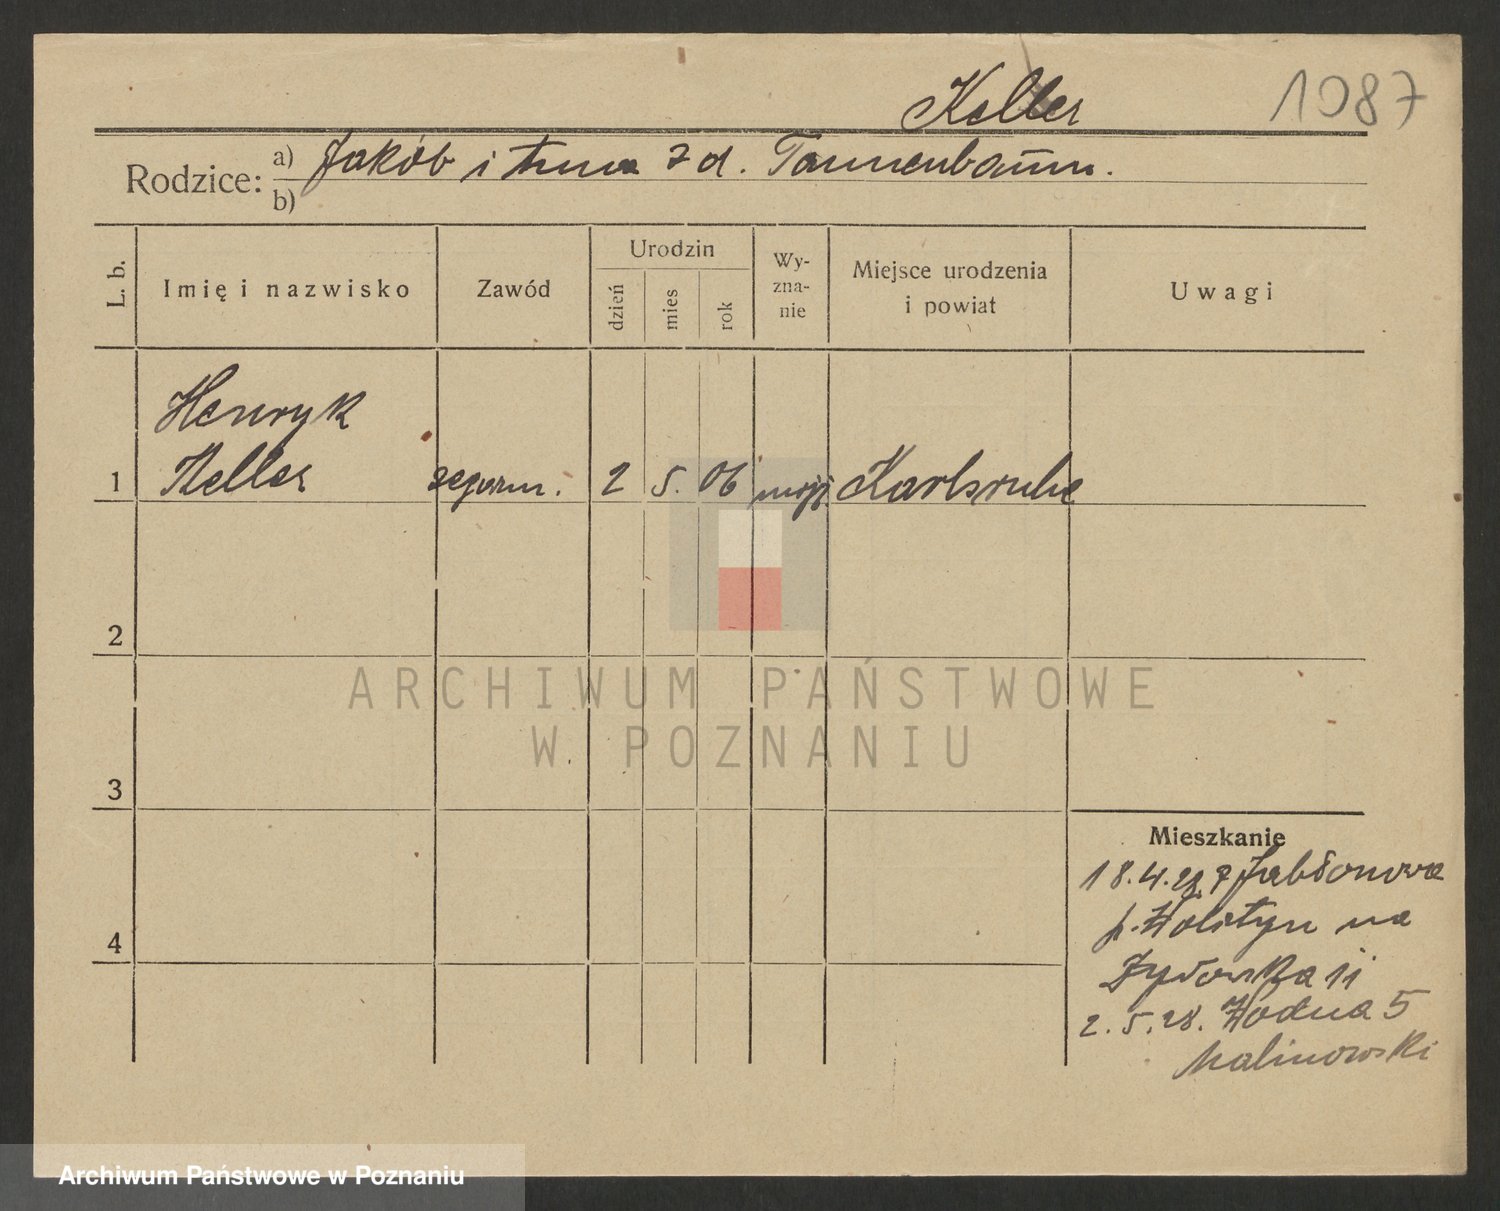 Keller
1087
Rodzice:
a) Jakób i Anna z d. Tannenbaum.
b)
L. b.
Imię i nazwisko
Zawód
Urodzin
dzień
mies
rok
Wy-
zna-
nie
Miejsce urodzenia
i powiat
Uwagi
Henryk
1 Keller zegarm. 2 5. 06 mojż. Karlsruhe
2
ARCHIWUM PAŃSTWOWE
W POZNANIU
3
4
Mieszkanie
18.4. z Jabłonowa
p. Wolsztyn na
Żydowska 11
2.5.28. Wodna 5
Malinowski
Archiwum Państwowe w Poznaniu